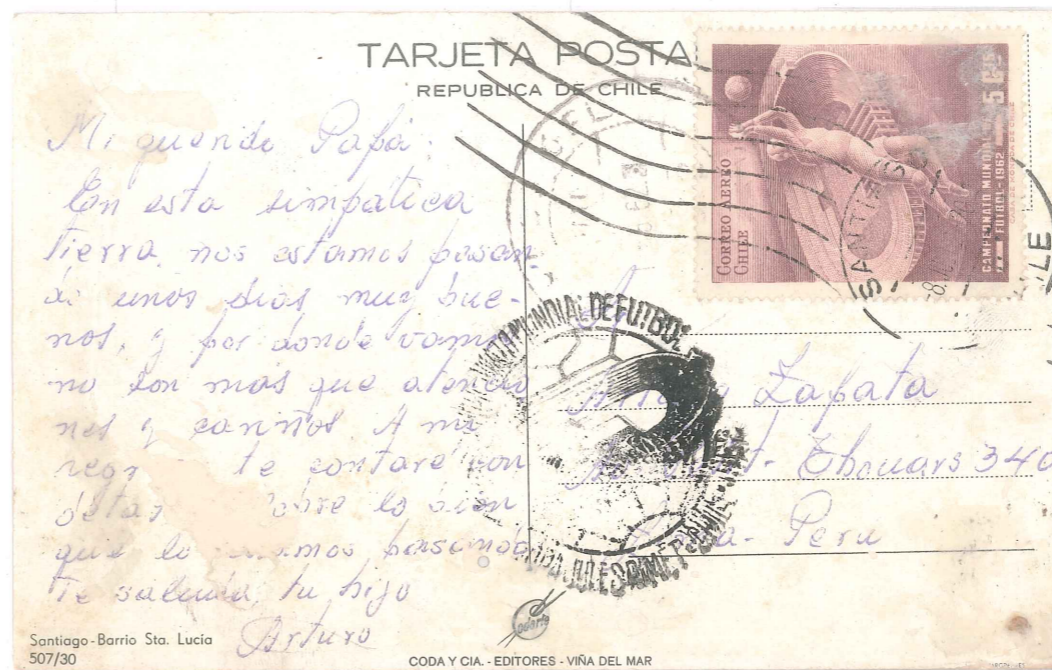 TARJETA POSTA
REPUBLICA DE CHILE
Mi querido Papá:
En esta simpática
tierra, nos estamos pasan-
do unos dias muy bue-
nos, y por donde vamo
no son más que atencio
nes y cariños A mi
regr te contaré con
detal obre lo bien
que lo pasando
Te saluda tu hijo
Arturo
CORREO AEREO
CHILE
5 Cts
CAMPEONATO MUNDIAL
FUTBOL-1962
CASA DE MONEDA DE CHILE
SANTIAGO
CHILE
MUNDIAL DE FUTBOL
JULES RIMET
Zapata
Thouars 340
Peru
Santiago-Barrio Sta. Lucía
507/30
CODA Y CIA. - EDITORES - VIÑA DEL MAR